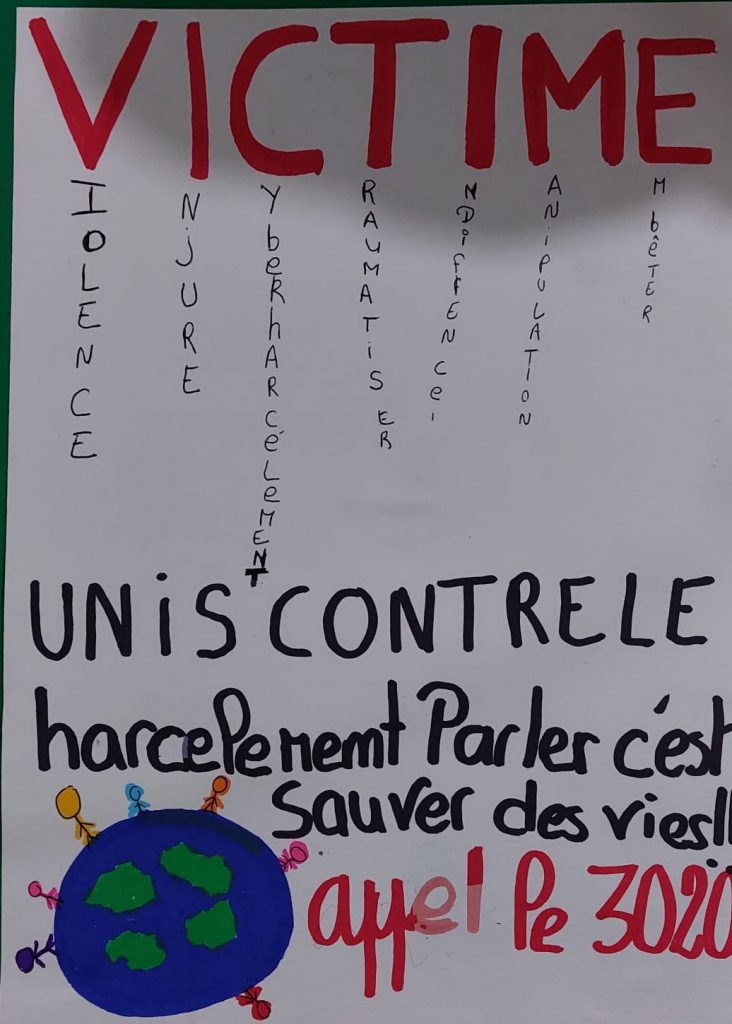 VICTIME
IOLENCE
NjURE
YberhARCéLeMENT
RAUMATiSER
NDiffENCe
ANiPULATION
MbêTER
UNiS CONTRE LE
harcelement Parler c'est
Sauver des vies!!
appel le 3020